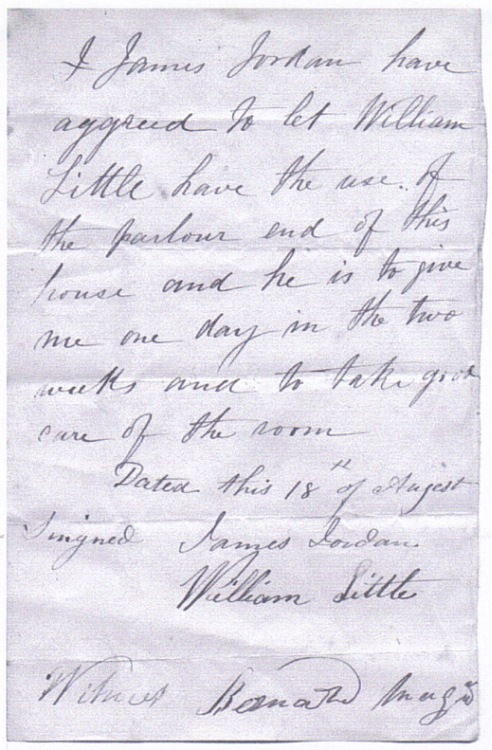 I James Jordan have
aggreed to let William
Little have the use of
the parlour end of this
house and he is to give
me one day in the two
weeks and to take good
care of the room
Dated this 18th of Augest
Singned James Jordan
William Little
Witness Bernard